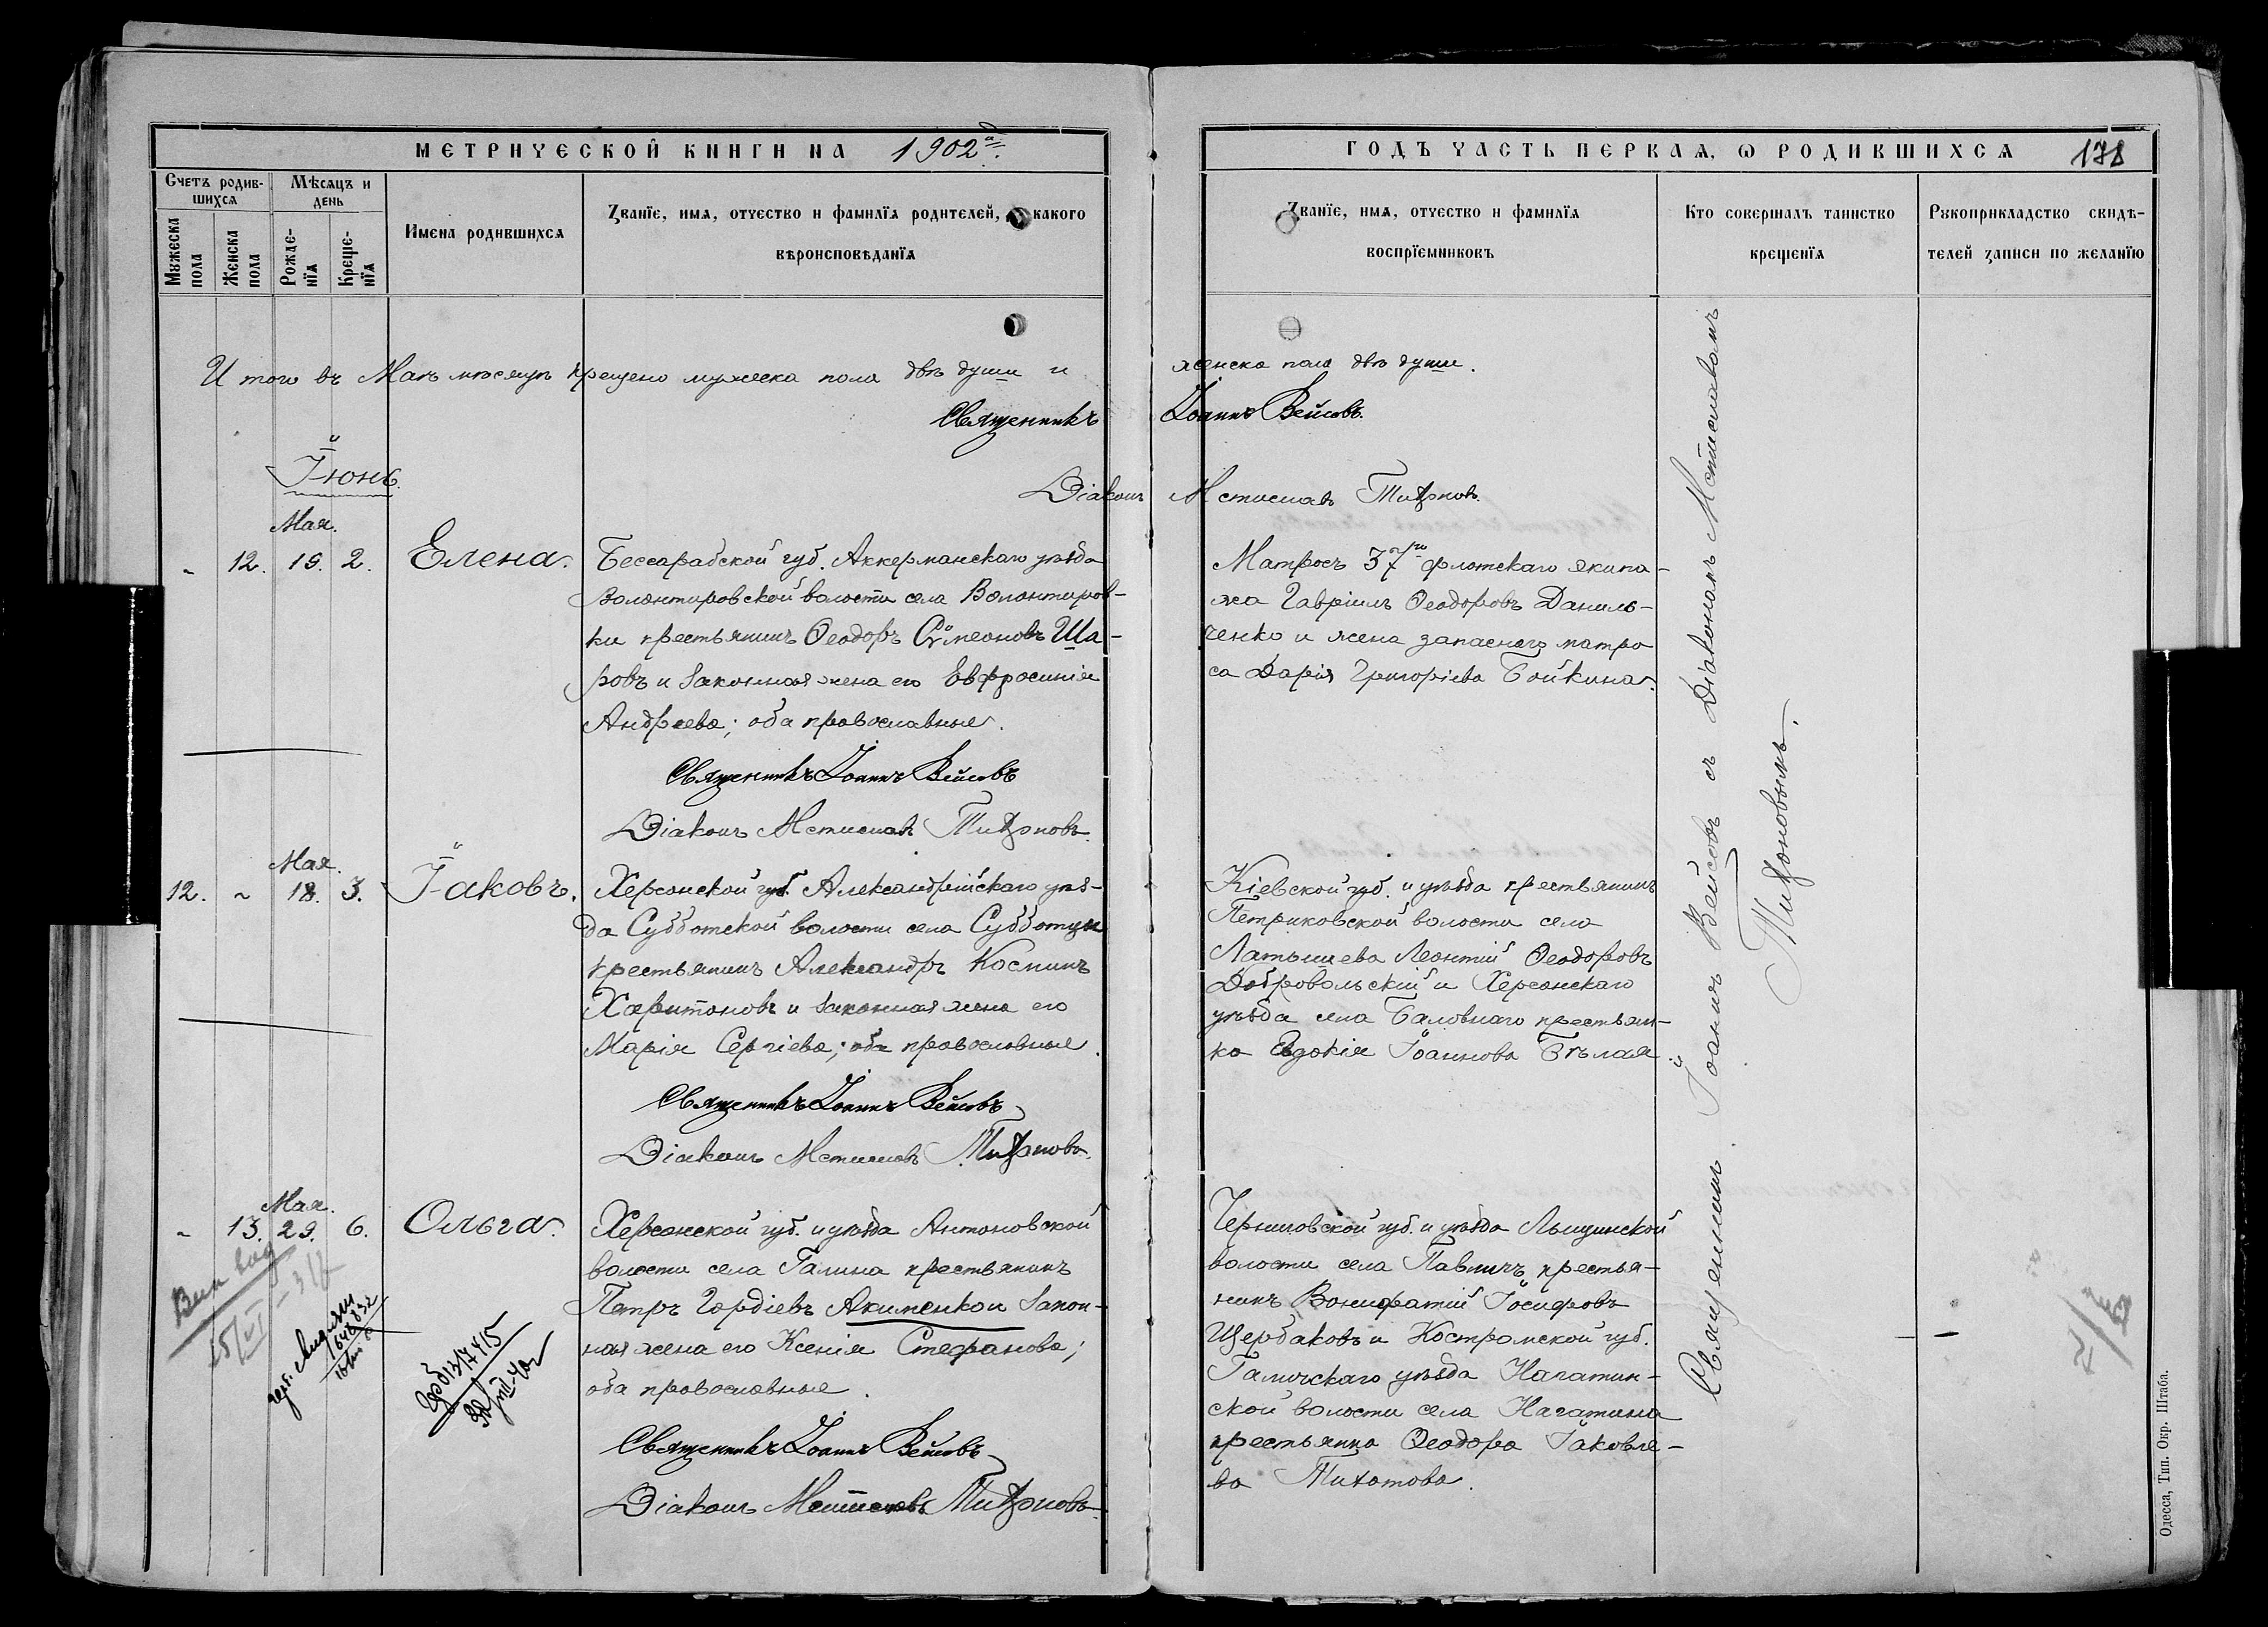 МЕТРИЧЕСКОЙ КНИГИ НА 1902
Счетъ родив-
шихся
Мѣсяцъ и
день
Мужеска
пола
Женска
пола
Рожде-
нїя
Креще-
нїя
Имена родившихся
Званїе, имя, отчество и фамилїя родителей, какого
вѣроисповѣданїя
Итого въ Маѣ мѣсяцѣ крещено мужеска пола двѣ души и
Священникъ
Іюнь.
Діаконъ
Мая.
" 12. 19. 2. Елена.
Бессарабской губ. Аккерманскаго уѣзда
Волонтировской волости села Волонтиров-
ки крестьянинъ Ѳеодоръ Сѵмеоновъ Ша-
ровъ и законная жена его Евфросинія
Андреева; оба православные.
Священникъ Іоаннъ Вейсовъ
Діаконъ Мстиславъ Тихоновъ.
Мая.
12. " 18. 3. Іаковъ.
Херсонской губ. Александрійскаго уѣз-
да Субботской волости села Субботцы
крестьянинъ Александръ Косминъ
Харитоновъ и законная жена его
Марія Сергіева; оба православные.
Священникъ Іоаннъ Вейсовъ
Діаконъ Мстиславъ Тихоновъ.
Мая.
" 13. 29. 6. Ольга.
Херсонской губ. и уѣзда Антоновской
волости села Галина крестьянинъ
Петръ Гордіевъ Акименко и закон-
ная жена его Ксенія Стефанова;
оба православные.
Священникъ Іоаннъ Вейсовъ
Діаконъ Мстиславъ Тихоновъ.
ГОДЪ ЧАСТЬ ПЕРВАЯ, Ѡ РОДИВШИХСЯ 178
Званїе, имя, отчество и фамилїя
воспрїемниковъ
Кто совершалъ таинство
крещенїя
Рукоприкладство свидѣ-
телей записи по желанїю
женска пола двѣ души.
Іоаннъ Вейсовъ.
Мстиславъ Тихоновъ.
Матросъ 37го флотскаго экипа-
жа Гавріилъ Ѳеодоровъ Даниль-
ченко и жена запаснаго матро
са Дарія Григоріева Бойкина.
Кіевской губ. и уѣзда крестьянинъ
Петриковской волости села
Латышева Леонтій Ѳеодоровъ
Добровольскій и Херсонскаго
уѣзда села Баловнаго крестьян-
ка Евдокія Іоаннова Бѣлая.
Черниговской губ. и уѣзда
волости села Павличъ крестья-
нинъ Вонифатій Іосифовъ
Щербаковъ и Костромской губ.
Галичскаго уѣзда Нагатин-
ской волости села Нагатина
крестьянка Ѳеодора Іаковле-
ва Титатова.
Священникъ Іоаннъ Вейсовъ съ Діакономъ Мстиславомъ
Тихоновымъ.
Одесса, Тип. Окр. Штаба.